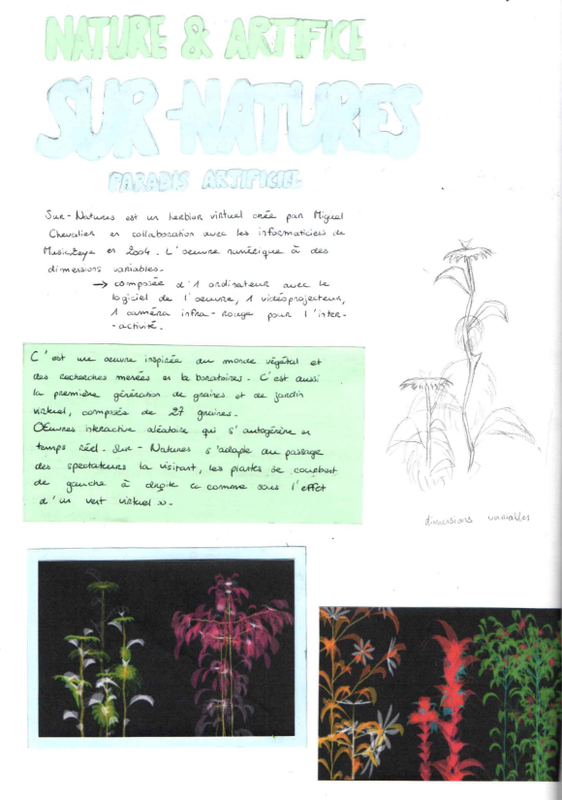 NATURE & ARTIFICE
SUR-NATURES
PARADIS ARTIFICIEL
Sur-Natures est un herbier virtuel créé par Miguel
Chevalier en collaboration avec les informaticiens de
Music2eye en 2004. L'oeuvre numérique à des
dimensions variables.
→ composée d'1 ordinateur avec le
logiciel de l'oeuvre, 1 vidéoprojecteur,
1 caméra infra-rouge pour l'inter-
-activité.
C'est une oeuvre inspirée du monde végétal et
des recherches menées en la boratoires. C'est aussi
la première génération de graines et de jardin
virtuel, composée de 27 graines.
OEuvres interactive aléatoire qui s'autogénère en
temps réel. Sur-Natures s'adapte au passage
des spectateurs la visitant, les plantes se courbent
de gauche à droite « comme sous l'effet
d'un vent virtuel ».
dimensions variables